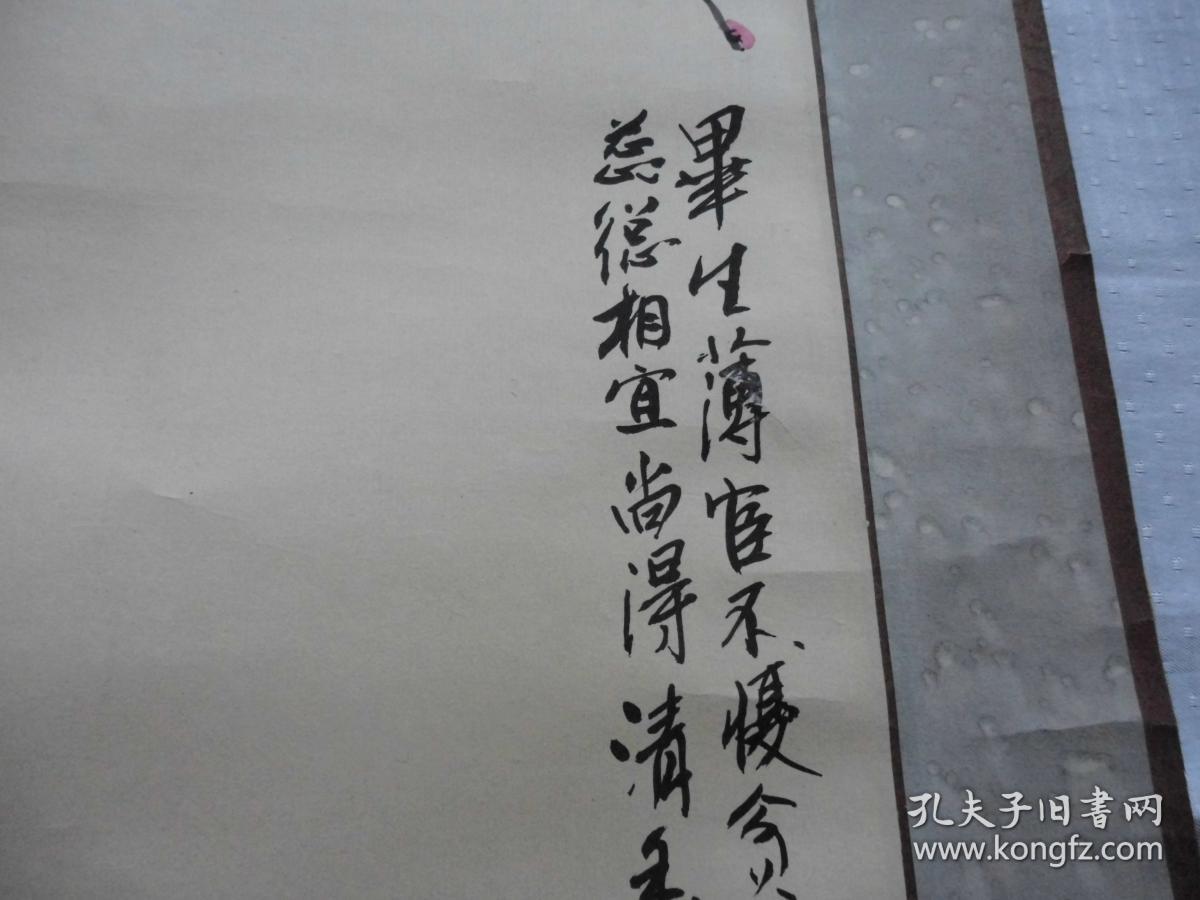 畢生薄宦不貧
蕊相宜尚得清
孔夫子旧书网
www.kongfz.com